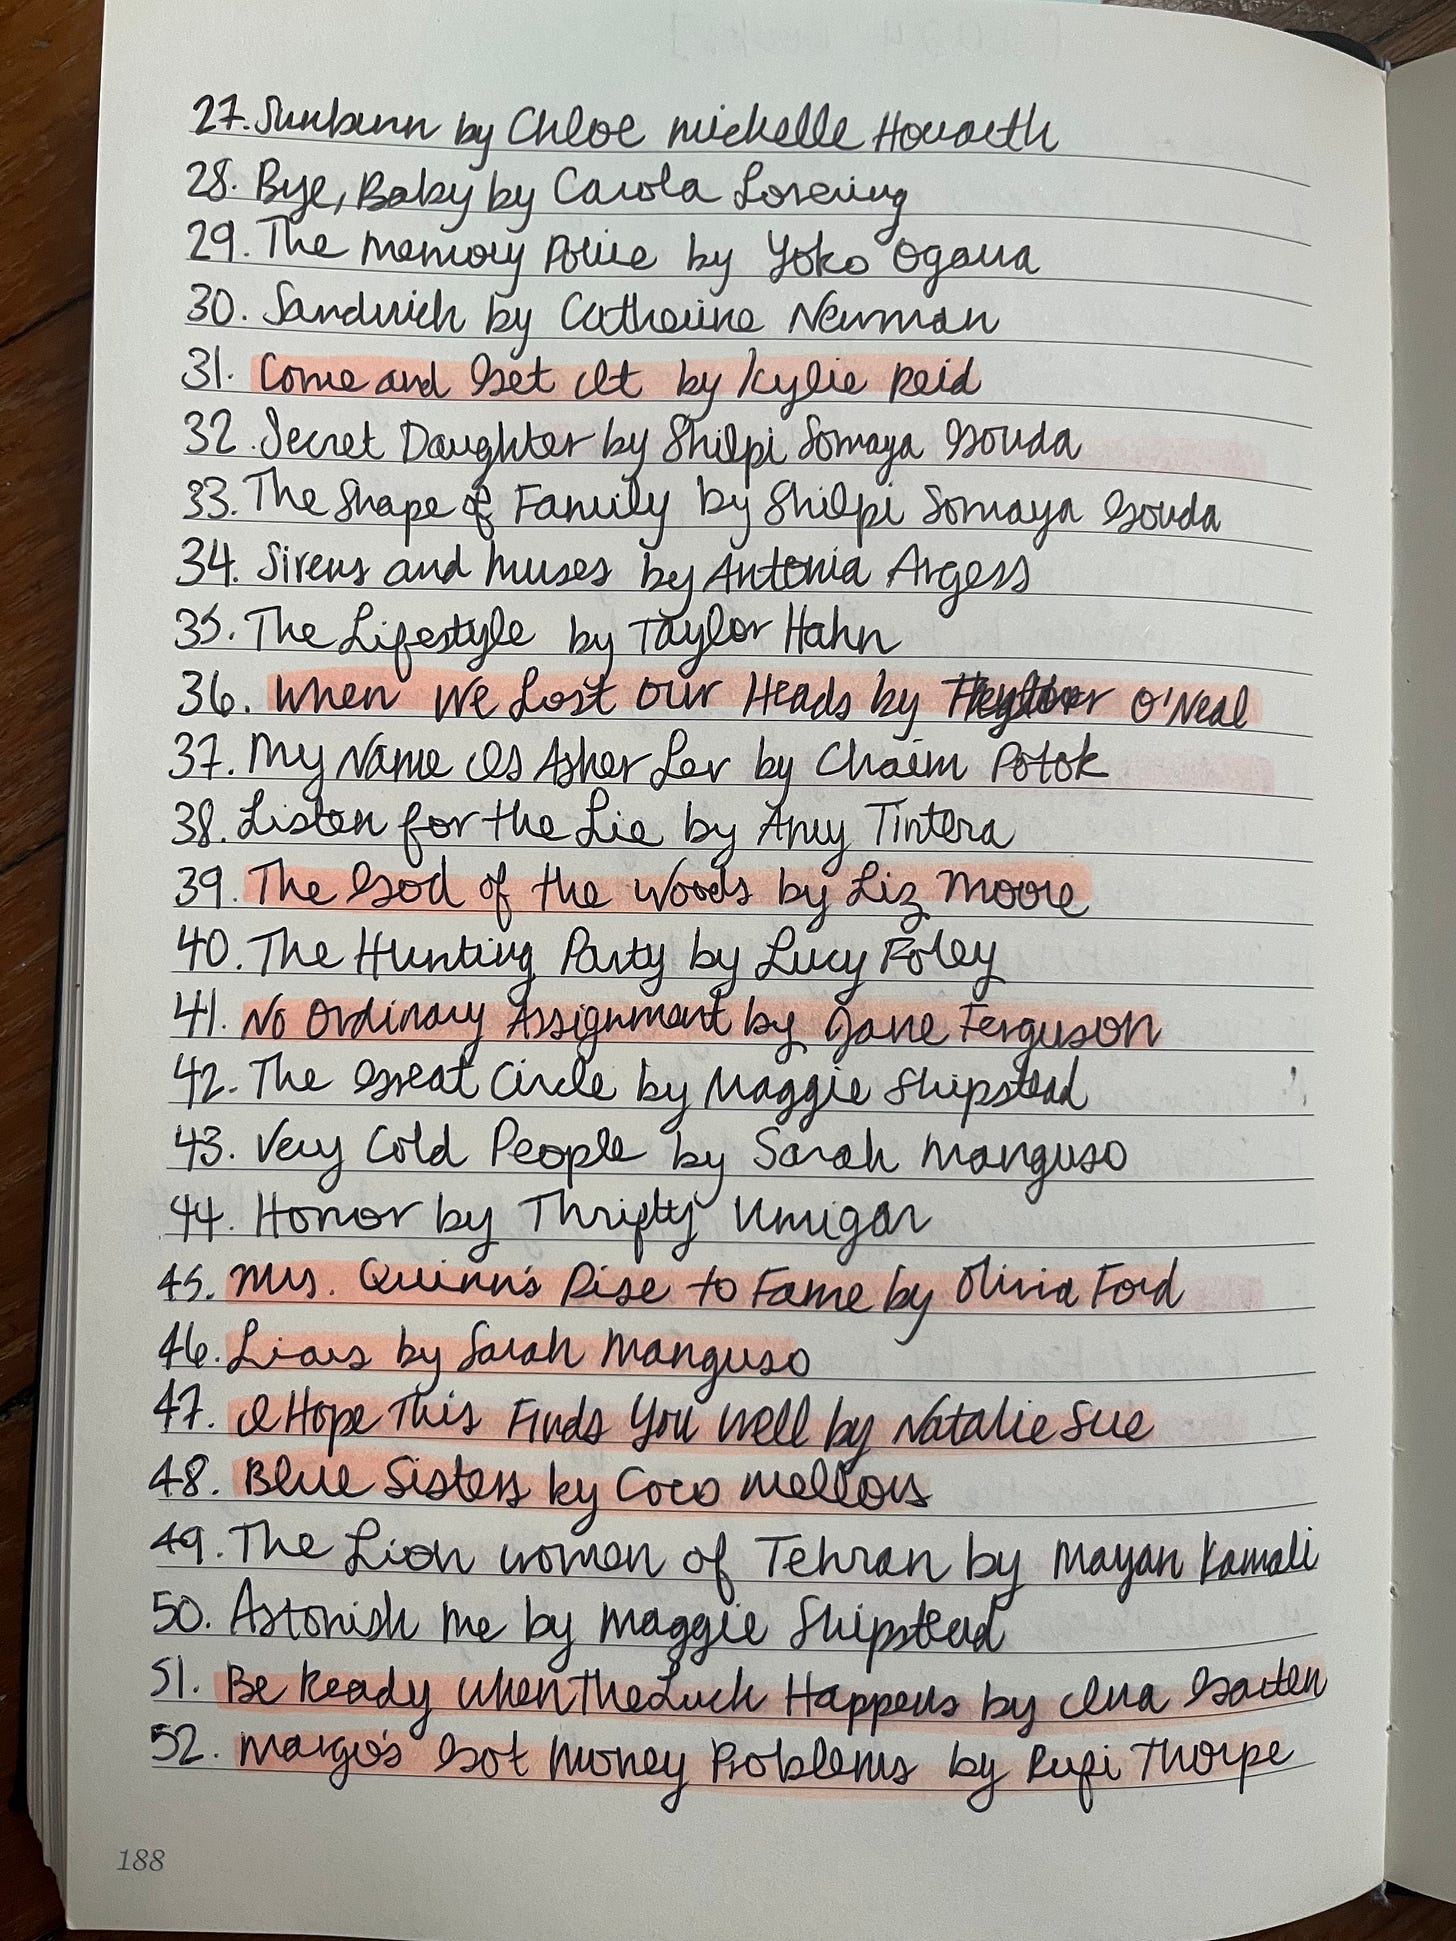 27. Sunburn by Chloe Michelle Howarth
28. Bye, Baby by Carola Lovering
29. The Memory Police by Yoko Ogawa
30. Sandwich by Catherine Newman
31. Come and Get It by Kylie Reid
32. Secret Daughter by Shilpi Somaya Gouda
33. The Shape of Family by Shilpi Somaya Gouda
34. Sirens and Muses by Antonia Argess
35. The Lifestyle by Taylor Hahn
36. When We Lost Our Heads by O'Neal
37. My Name Is Asher Lev by Chaim Potok
38. Listen for the Lie by Amy Tintera
39. The God of the Woods by Liz Moore
40. The Hunting Party by Lucy Foley
41. No Ordinary Assignment by Jane Ferguson
42. The Great Circle by Maggie Shipstead
43. Very Cold People by Sarah Manguso
44. Honor by Thrifty Umigar
45. Mrs. Quinn's Rise to Fame by Olivia Ford
46. Liars by Sarah Manguso
47. I Hope This Finds You Well by Natalie Sue
48. Blue Sisters by Coco Mellors
49. The Lion Women of Tehran by Mayan Kamali
50. Astonish Me by Maggie Shipstead
51. Be Ready When The Luck Happens by Ina Garten
52. Margo's Got Money Problems by Rufi Thorpe
188